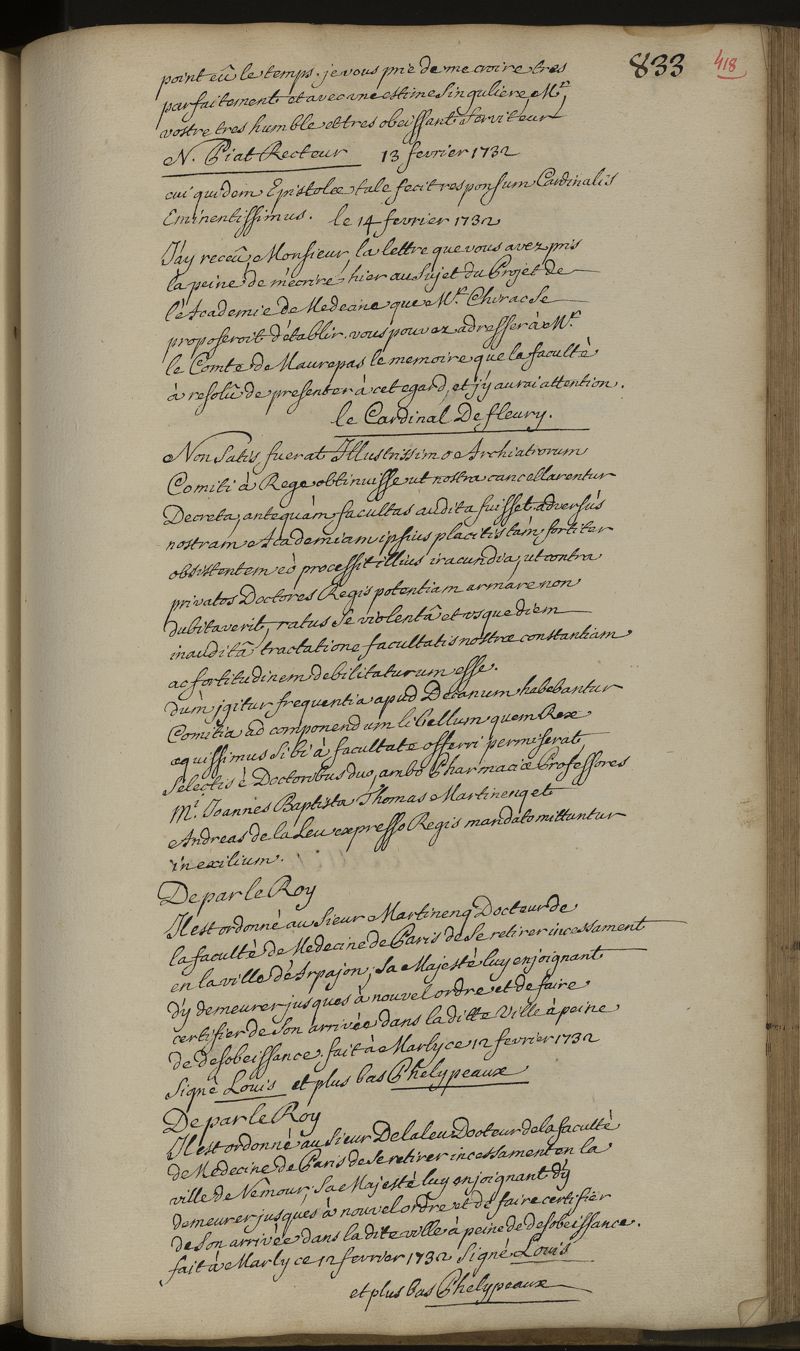 833 418
point eû le temps. je vous prie de me croire tres
parfaitement et avec une estime singuliere Mr
vostre tres humble et tres obeissant serviteur
N. Piat Recteur 13 fevrier 1732
cui quidem Epistolæ tale fecit responsum Cardinalis
Eminentissimus. le 14 fevrier 1732
J'ay receû, Monsieur, la lettre que vous avez pris
la peine de m'ecrire hier au sujet du Projet de
l'Academie de Medecine que Mr Chirac se
proposeroit d'établir. vous pouvez adresser à Mr
le Comte de Maurepas le memoire que la faculté
à resolû de presenter à cet egard, et j'y aurai attention.
le Cardinal De fleury.
Non Satis fuerat Illustrissimo Archiatrorum
Comiti à Rege obtinuisse ut nostra cancellarentur
Decreta, antequàm facultas audita fuisset adversùs
nostram Academiam ipsius placitis tàm fortiter
obsistentem eò processit illius iracundia, ut contra
privatos Doctores Regis potentiam armare non
dubitaverit, ratus se violentâ et usque diem
inauditâ tractatione facultatis nostræ constantiam
ac fortitudinem debilitaturum esse.
dùm igitur frequentia apud Decanum habebantur
Comitia ad componendum libellum quem Rex
æquissimus sibi à facultate offerri permiserat,
Selectis è Doctoribus duo, ambo Pharmaciæ Professores
Mr. Joannes Baptista Thomas Martinenq et
Andreas de la Leu expresso Regis mandato mittuntur
in exilium.
De par le Roy
Il est ordonné au Sieur Martinenq Docteur de
la faculté de Medecine de Paris de se retirer incessament
en la ville d'Arpajon, sa Majesté luy enjoignant
d'y demeurer jusques à nouvel ordre et de faire
certifier de son arrivée dans la ditte ville à peine
de desobeissance. fait à Marly ce 12 fevrier 1732
Signé Louis et plus bas Phelypeaux
De par le Roy
Il est ordonné au Sieur Delaleu Docteur de la faculté
de Medecine de Paris de se retirer incessament en la
ville de Nemour, sa Majesté luy enjoignant d'y
demeurer jusques à nouvel ordre et de faire certifier
de son arrivée dans la dite ville à peine de desobeissance.
fait à Marly ce 12 fevrier 1732 Signé Louis
et plus bas Phelypeaux